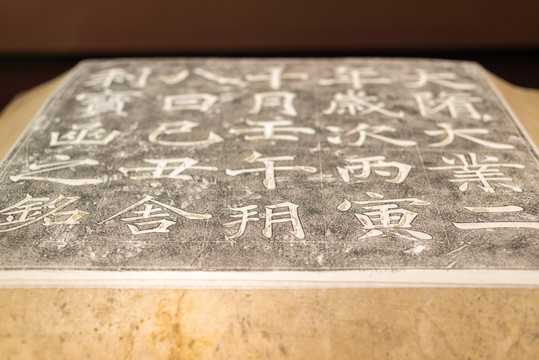 大隋大業二
年歲次丙寅
十月壬午朔
八日己丑舍
利寶函之銘